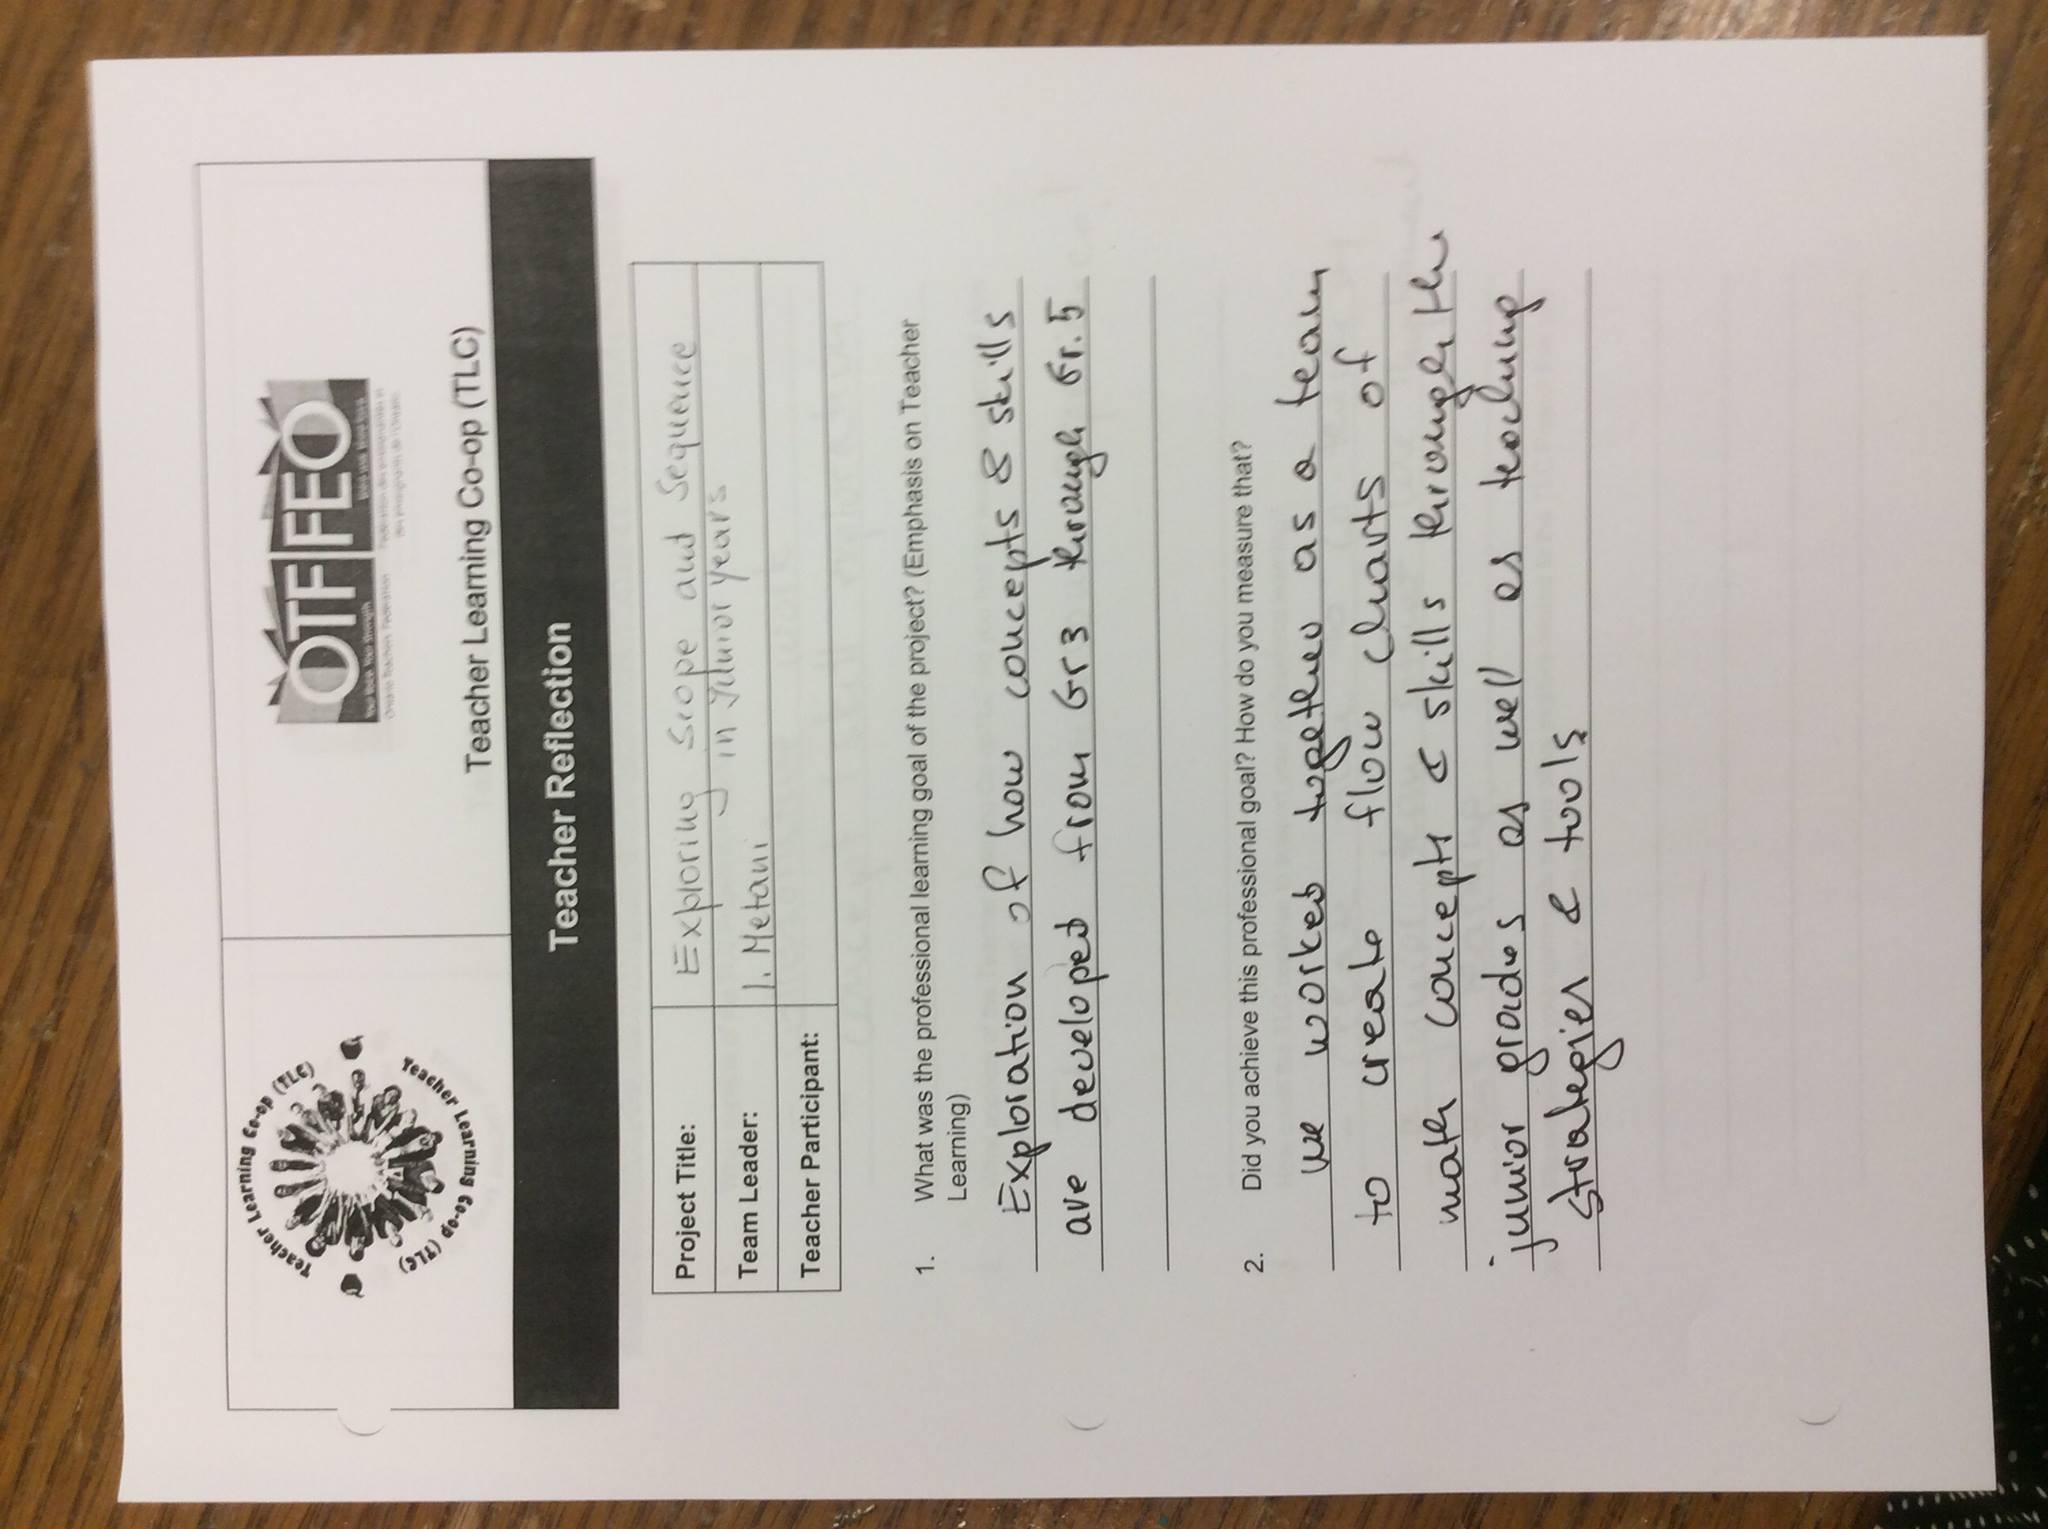 Teacher Learning Co-op (TLC)
Teacher Learning Co-op (TLC)
OTF FEO
Your Voice. Your Strength.
Ontario Teachers' Federation
Teacher Learning Co-op (TLC)
Teacher Reflection
Project Title: Exploring Scope and Sequence
in Junior years
Team Leader: I. Metani
Teacher Participant:
1. What was the professional learning goal of the project? (Emphasis on Teacher
Learning)
Exploration of how concepts & skills
are developed from Gr3 through Gr.5
2. Did you achieve this professional goal? How do you measure that?
we worked together as a team
to create flow charts of
math concepts & skills through the
junior grades as well as teaching
strategies & tools